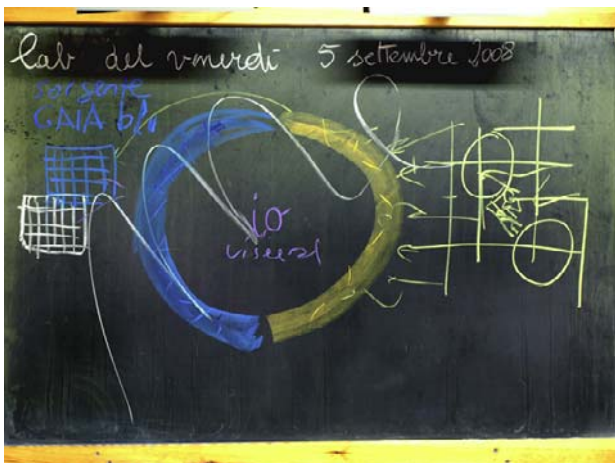 lab del venerdì 5 settembre 2008
sorgente
GAIA blu
io
visceral